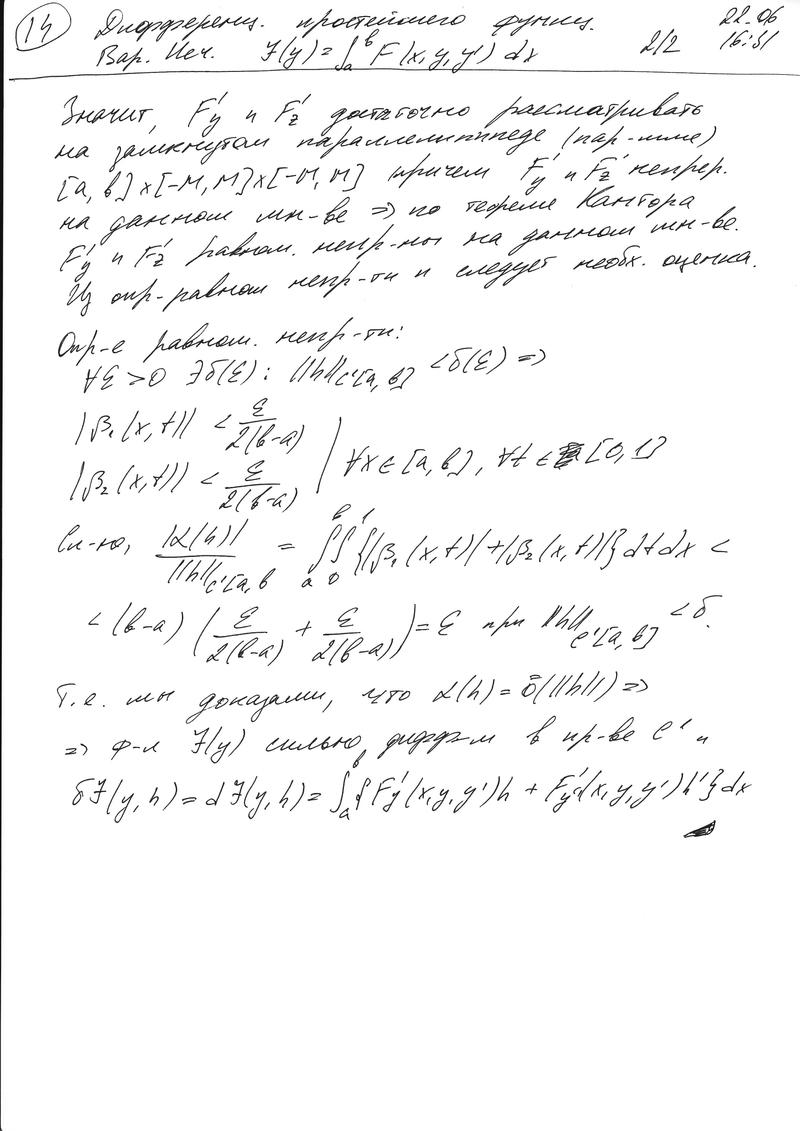 14 Дифференц. простейшего функц. 22.06
Вар. Исч. J(y) = ∫_a^b F(x, y, y') dx 2/2 16:31
Значит, F'_y и F'_z достаточно рассматривать
на замкнутом параллелипипеде (пар-мме)
[a, b]×[-M, M]×[-M, M] причем F'_y и F'_z непрер.
на данном мн-ве => по теореме Кантора
F'_y и F'_z равном. непр-ны на данном мн-ве.
Из опр. равном непр-ти и следует необх. оценка.
Опр-е равном. непр-ти:
∀ε>0 ∃δ(ε): ||h||_{C'[a, b]} < δ(ε) =>
|β₁(x, t)| < ε/(2(b-a))
|β₂(x, t)| < ε/(2(b-a)) | ∀x∈[a, b], ∀t∈[0, 1]
Сл-но, |α(h)|/||h||_{C'[a, b} = ∫_a^b ∫_0^1 {|β₁(x, t)|+|β₂(x, t)|} dt dx <
< (b-a) (ε/(2(b-a)) + ε/(2(b-a))) = ε при ||h||_{C'[a, b]} < δ.
Т.е. мы доказали, что α(h) = ō(||h||) =>
=> ф-л J(y) сильно дифф-м в пр-ве C' и
δJ(y, h) = dJ(y, h) = ∫_a^b {F'_y(x, y, y')h + F'_{y'}(x, y, y')h'} dx